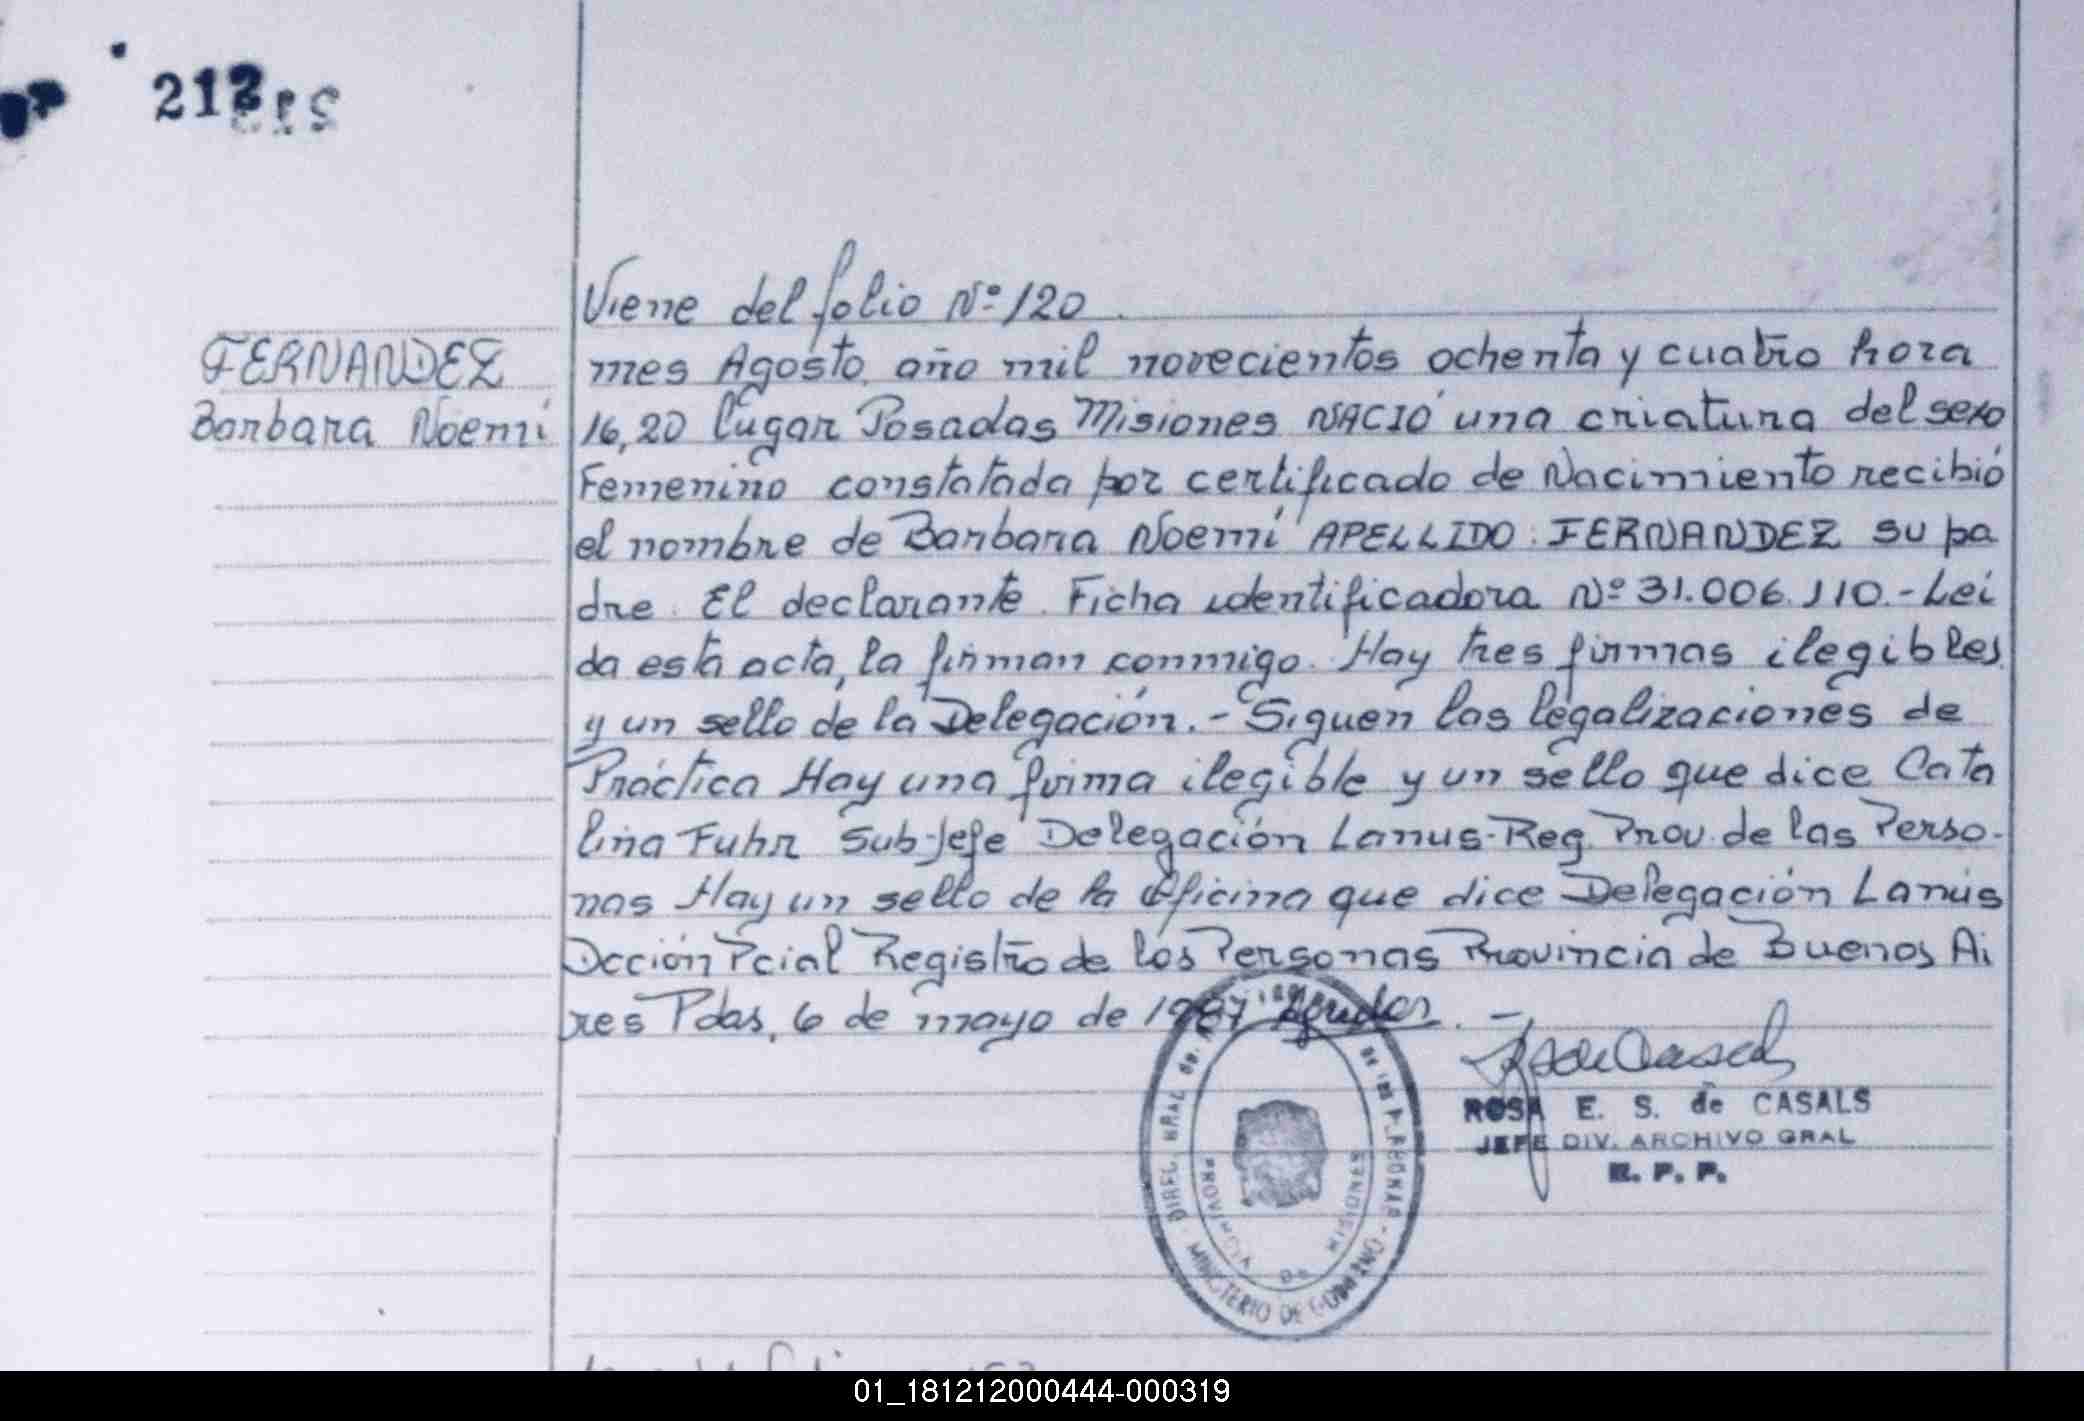 212
Viene del folio Nº 120.
FERNANDEZ
Barbara Noemí
mes Agosto año mil novecientos ochenta y cuatro hora
16,20 lugar Posadas Misiones NACIÓ una criatura del sexo
Femenino constatada por certificado de Nacimiento recibió
el nombre de Barbara Noemí APELLIDO: FERNANDEZ su pa
dre. El declarante. Ficha identificadora Nº 31.006.110.- Leí
da esta acta, la firman conmigo. Hay tres firmas ilegibles
y un sello de la Delegación.- Siguen las legalizaciones de
Práctica Hay una firma ilegible y un sello que dice Cata
lina Fuhr Sub-Jefe Delegación Lanus-Reg. Prov. de las Perso-
nas Hay un sello de la Oficina que dice Delegación Lanús
Dcción Pcial Registro de las Personas Provincia de Buenos Ai
res Pdas, 6 de mayo de 1987
ROSA E. S. de CASALS
JEFE DIV. ARCHIVO GRAL
R. P. P.
DIREC. GRAL de de las PERSONAS - MINISTERIO DE GOBIERNO -
PROVINCIA DE MISIONES
01_181212000444-000319